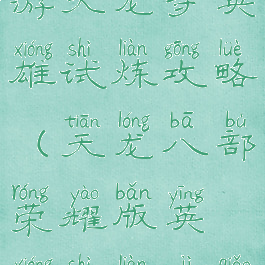 xióng shì liàn gōng lüè
雄试炼攻略
tiān lóng bā bù
（天龙八部
róng yào bǎn yīng
荣耀版英